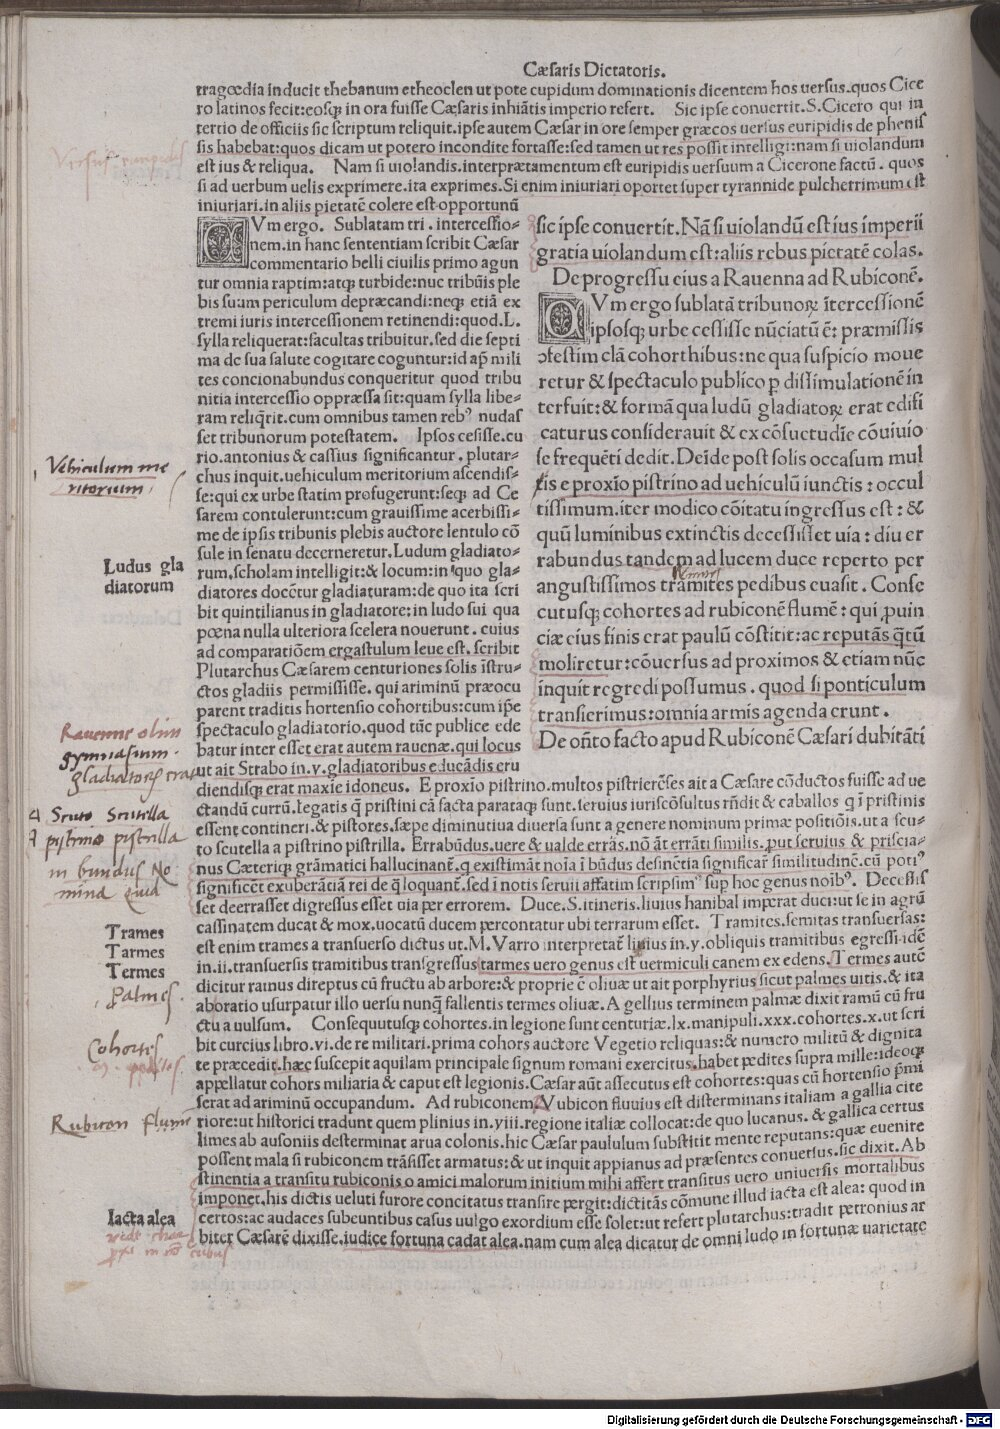 Cæsaris Dictatoris.
tragœdia inducit thebanum etheoclen ut pote cupidum dominationis dicentem hos uersus.quos Cice
ro latinos fecit:eosq; in ora fuisse Cæsaris inhiātis imperio refert. Sic ipse conuertit.S.Cicero qui in
tertio de officiis sic scriptum reliquit.ipse autem Cæsar in ore semper græcos uersus euripidis de phenis
sis habebat:quos dicam ut potero incondite fortasse:sed tamen ut res possit intelligi:nam si uiolandum
est ius & reliqua. Nam si uiolandis.interprætamentum est euripidis uersuum a Cicerone factū. quos
si ad uerbum uelis exprimere.ita exprimes.Si enim iniuriari oportet super tyrannide pulcherrimum est
iniuriari.in aliis pietatē colere est opportunū
QVm ergo. Sublatam tri. intercessio-
nem.in hanc sententiam scribit Cæsar
commentario belli ciuilis primo agun
tur omnia raptim:atq; turbide:nuc tribūis ple
bis suum periculum depræcandi:neq; etiā ex
tremi iuris intercessionem retinendi:quod.L.
sylla reliquerat:facultas tribuitur.sed die septi
ma de sua salute cogitare coguntur:id ap̄ mili
tes concionabundus conqueritur quod tribu
nitia intercessio oppræssa sit:quam sylla libe-
ram reliq̄rit.cum omnibus tamen rebꝰ nudas
set tribunorum potestatem. Ipsos cesisse.cu
rio.antonius & cassius significantur. plutar-
chus inquit.uehiculum meritorium ascendis-
se:qui ex urbe statim profugerunt:seq; ad Ce
sarem contulerunt:cum grauissime acerbissi-
me de ipsis tribunis plebis auctore lentulo cō
sule in senatu decerneretur.Ludum gladiato-
rum.scholam intelligit:& locum:in quo gla-
diatores docētur gladiaturam:de quo ita scri
bit quintilianus in gladiatore:in ludo fui qua
pœna nulla ulteriora scelera nouerunt. cuius
ad comparatiōem ergastulum leue est. scribit
Plutarchus Cæsarem centuriones solis īstru-
ctos gladiis permisisse. qui ariminū præocu
parent traditis hortensio cohortibus:cum ip̄e
spectaculo gladiatorio.quod tūc publice ede
batur inter esset erat autem rauenæ.qui locus
ut ait Strabo in.v.gladiatoribus educādis eru
sic ipse conuertit.Nā si uiolandū est ius imperii
gratia uiolandum est:aliis rebus pietatē colas.
De progressu eius a Rauenna ad Rubiconē.
QVm ergo sublatā tribunorꝝ ītercessionē
ipsosq; urbe cessisse nūciatū ē: præmissis
ↄfestim clā cohorthibus:ne qua suspicio moue
retur & spectaculo publico p dissimulationē in
terfuit:& formā qua ludū gladiatorꝝ erat edifi
caturus considerauit & ex cōsuetudīe cōuiuio
se frequēti dedit. Deīde post solis occasum mul
tis e proxīo pistrino ad uehiculū iunctis : occul
tissimum.iter modico cōitatu ingressus est : &
quū luminibus extinctis decessisset uia : diu er
rabundus tandem ad lucem duce reperto per
angustissimos tramites pedibus euasit . Conse
cutusq; cohortes ad rubiconē flumē: qui ꝓuin
ciæ eius finis erat paulū cōstitit:ac reputās q̄tū
moliretur:cōuersus ad proximos & etiam nūc
inquit regredi possumus . quod si ponticulum
transierimus:omnia armis agenda erunt .
De oñto facto apud Rubiconē Cæsari dubitāti
diendisq; erat maxie idoneus. E proxīo pistrino.multos pistrierēses ait a Cæsare cōductos fuisse ad ue
ctandū currū.legatis q̄ pristini cā facta parataq; sunt.seruius iuriscōsultus rñdit & caballos q ī pristinis
essent contineri.& pistores.sæpe diminutiua diuersa sunt a genere nominum primæ positiōis.ut a scu-
to scutella a pistrino pistrilla. Errabūdus.uere & ualde errās.nō āt errāti similis.put seruius & priscia-
nus Cæteriq; grāmatici hallucinant.q existimāt noīa ī būdus desinētia significar̄ similitudinē.cū potiꝰ
significēt exuberātiā rei de q̄ loquant̄.sed ī notis seruii affatim scripsimꝰ sup hoc genus noībꝰ. Decessis
set deerrasset digressus esset uia per errorem. Duce.S.itineris.liuius hanibal imperat duci:ut se in agrū
cassinatem ducat & mox.uocatū ducem percontatur ubi terrarum esset. Tramites.semitas transuersas:
est enim trames a transuerso dictus ut.M.Varro interpretat̄ liuius in.y.obliquis tramitibus egressi.idē
in.ii.transuersis tramitibus transgressus tarmes uero genus est uermiculi canem ex edens.Termes autē
dicitur ramus direptus cū fructu ab arbore:& proprie ē oliuæ ut ait porphyrius sicut palmes uitis.& ita
aboratio usurpatur illo uersu nunq̄ fallentis termes oliuæ.A gellius terminem palmæ dixit ramū cū fru
ctu a uulsum. Consequutusq; cohortes.in legione sunt centuriæ.lx.manipuli.xxx.cohortes.x.ut scri
bit curcius libro.vi.de re militari.prima cohors auctore Vegetio reliquas:& numero militū & dignita
te præcedit.hæc suscepit aquilam principale signum romani exercitus.habet pedites supra mille:ideoq;
appellatur cohors miliaria & caput est legionis.Cæsar aūt assecutus est cohortes:quas cū hortensio p̄mi
serat ad ariminū occupandum. Ad rubiconem.Vubicon fluuius est disterminans italiam a gallia cite
riore:ut historici tradunt quem plinius in.viii.regione italiæ collocat:de quo lucanus. & gallica certus
limes ab ausoniis desterminat arua colonis.hic Cæsar paululum substitit mente reputans:quæ euenire
possent mala si rubiconem trāsisset armatus:& ut inquit appianus ad præsentes conuersus.sic dixit.Ab
stinentia a transitu rubiconis o amici malorum initium mihi affert transitus uero uniuersis mortalibus
imponet.his dictis ueluti furore concitatus transire pergit:dictitās cōmune illud iacta est alea: quod in
certos:ac audaces subeuntibus casus uulgo exordium esse solet:ut refert plutarchus:tradit petronius ar
biter Cæsarē dixisse.iudice fortuna cadat alea.nam cum alea dicatur de omni ludo in fortunæ uarietate
Vehiculum me
ritorium
Ludus gla
diatorum
Rauenne olim
gymnasium
gladiatorꝝ erat
Scuto Scutella
pistrino pistrilla
in bundus No
mina quid
Trames
Tarmes
Termes
Palmes
Cohortes
Rubicon flumē
Iacta alea
Digitalisierung gefördert durch die Deutsche Forschungsgemeinschaft - DFG